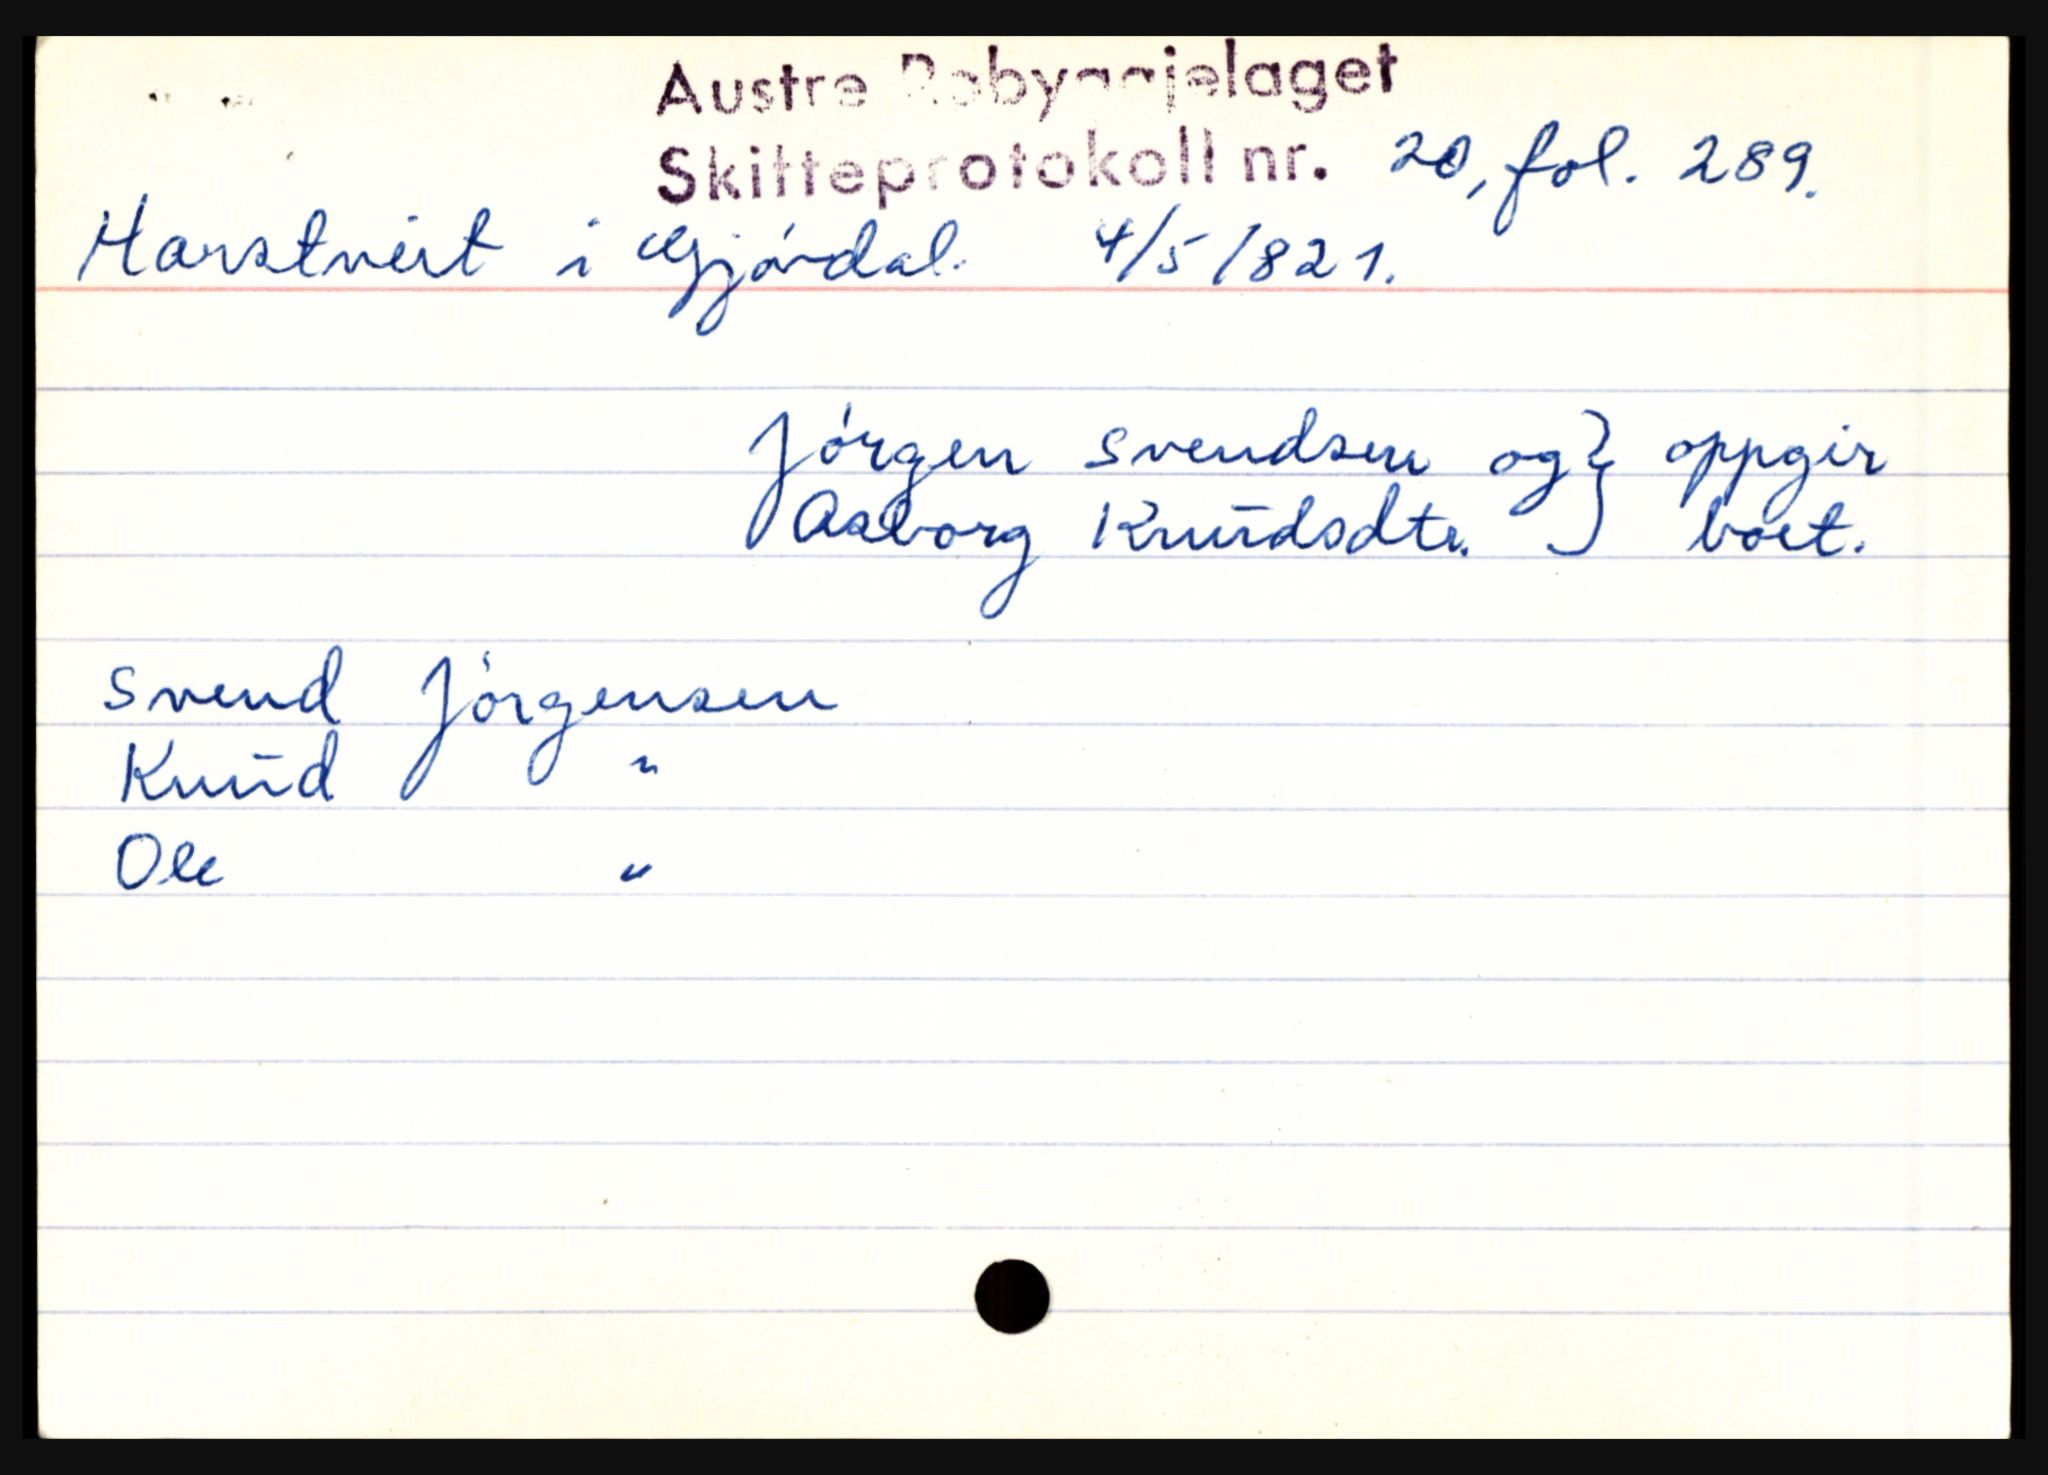 Austre Robyggjelaget
Skifteprotokoll nr. 20, fol. 289.
Harstveit i Gjövdal. 4/5 1821.
Jörgen Svendsen og } oppgir
Asborg Knudsdtr. } boet.
Svend Jörgensen
Knud "
Ole "